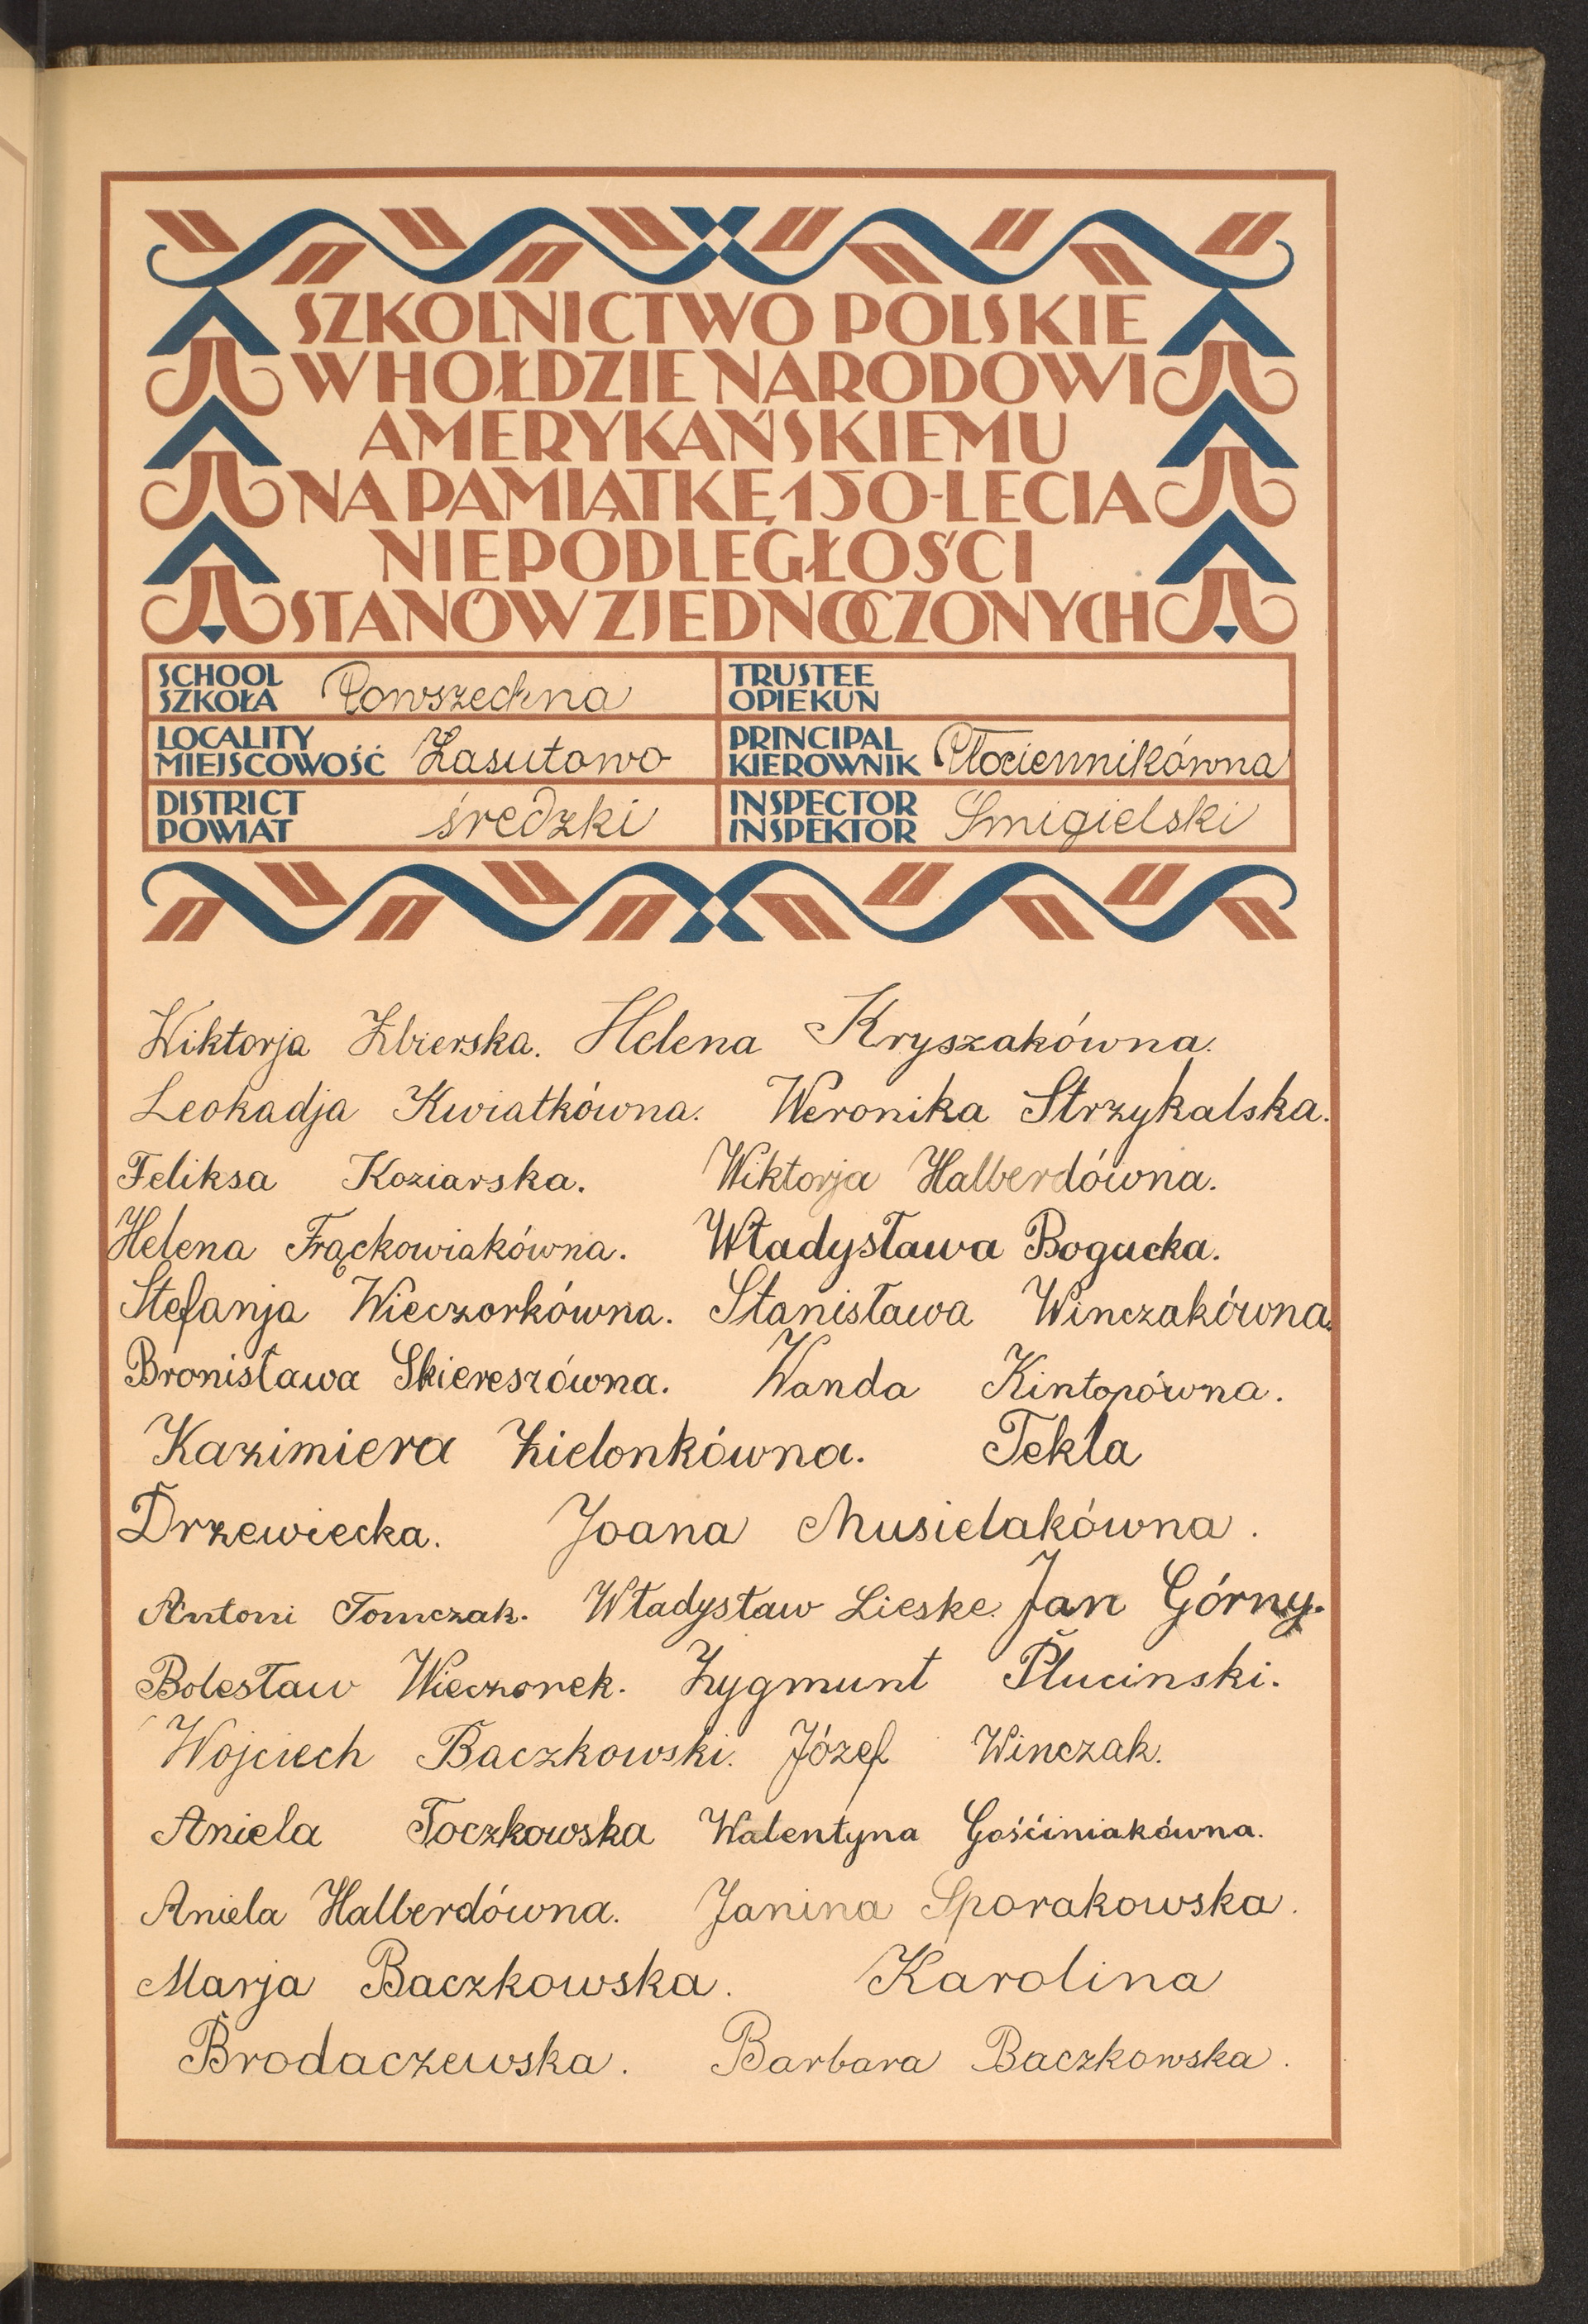 SZKOLNICTWO POLSKIE
W HOŁDZIE NARODOWI
AMERYKAŃSKIEMU
NA PAMIĄTKĘ 150-LECIA
NIEPODLEGŁOŚCI
STANÓW ZJEDNOCZONYCH
SCHOOL
SZKOŁA Powszechna
TRUSTEE
OPIEKUN
LOCALITY
MIEJSCOWOŚĆ Zasutowo
PRINCIPAL
KIEROWNIK Płóciennikówna
DISTRICT
POWIAT średzki
INSPECTOR
INSPEKTOR Śmigielski
Wiktorja Zbierska. Helena Kryszakówna.
Leokadja Kwiatkówna. Weronika Strzykalska.
Feliksa Koziarska. Wiktorja Halberdówna.
Helena Frąckowiakówna. Władysława Bogucka.
Stefanja Wieczorkówna. Stanisława Winczakówna.
Bronisława Skiereszówna. Wanda Kintopówna.
Kazimiera Zielonkówna. Tekla
Drzewiecka. Joana Musielakówna.
Antoni Tomczak. Władysław Lieske. Jan Górny.
Bolesław Wieczorek. Zygmunt Plucinski.
Wojciech Baczkowski. Józef Winczak.
Aniela Toczkowska Walentyna Gośćiniakówna.
Aniela Halberdówna. Janina Sporakowska.
Marja Baczkowska. Karolina
Brodaczewska. Barbara Baczkowska.